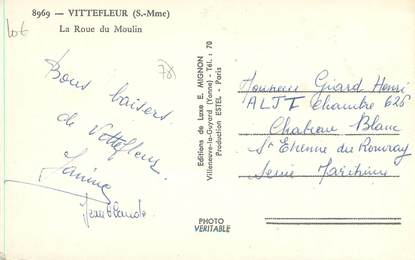 8969 — VITTEFLEUR (S.-Mme)
La Roue du Moulin
Lot
78
Bons baisers
de Vittefleur.
Janine
Jean Claude
Editions de Luxe E. MIGNON
Villeneuve-la-Guyard (Yonne) - Tél. : 70
Production ESTEL - Paris
PHOTO
VERITABLE
Monsieur Giard Henri
Chambre 626
Chateau Blanc
St Etienne du Rouvray
Seine Maritime